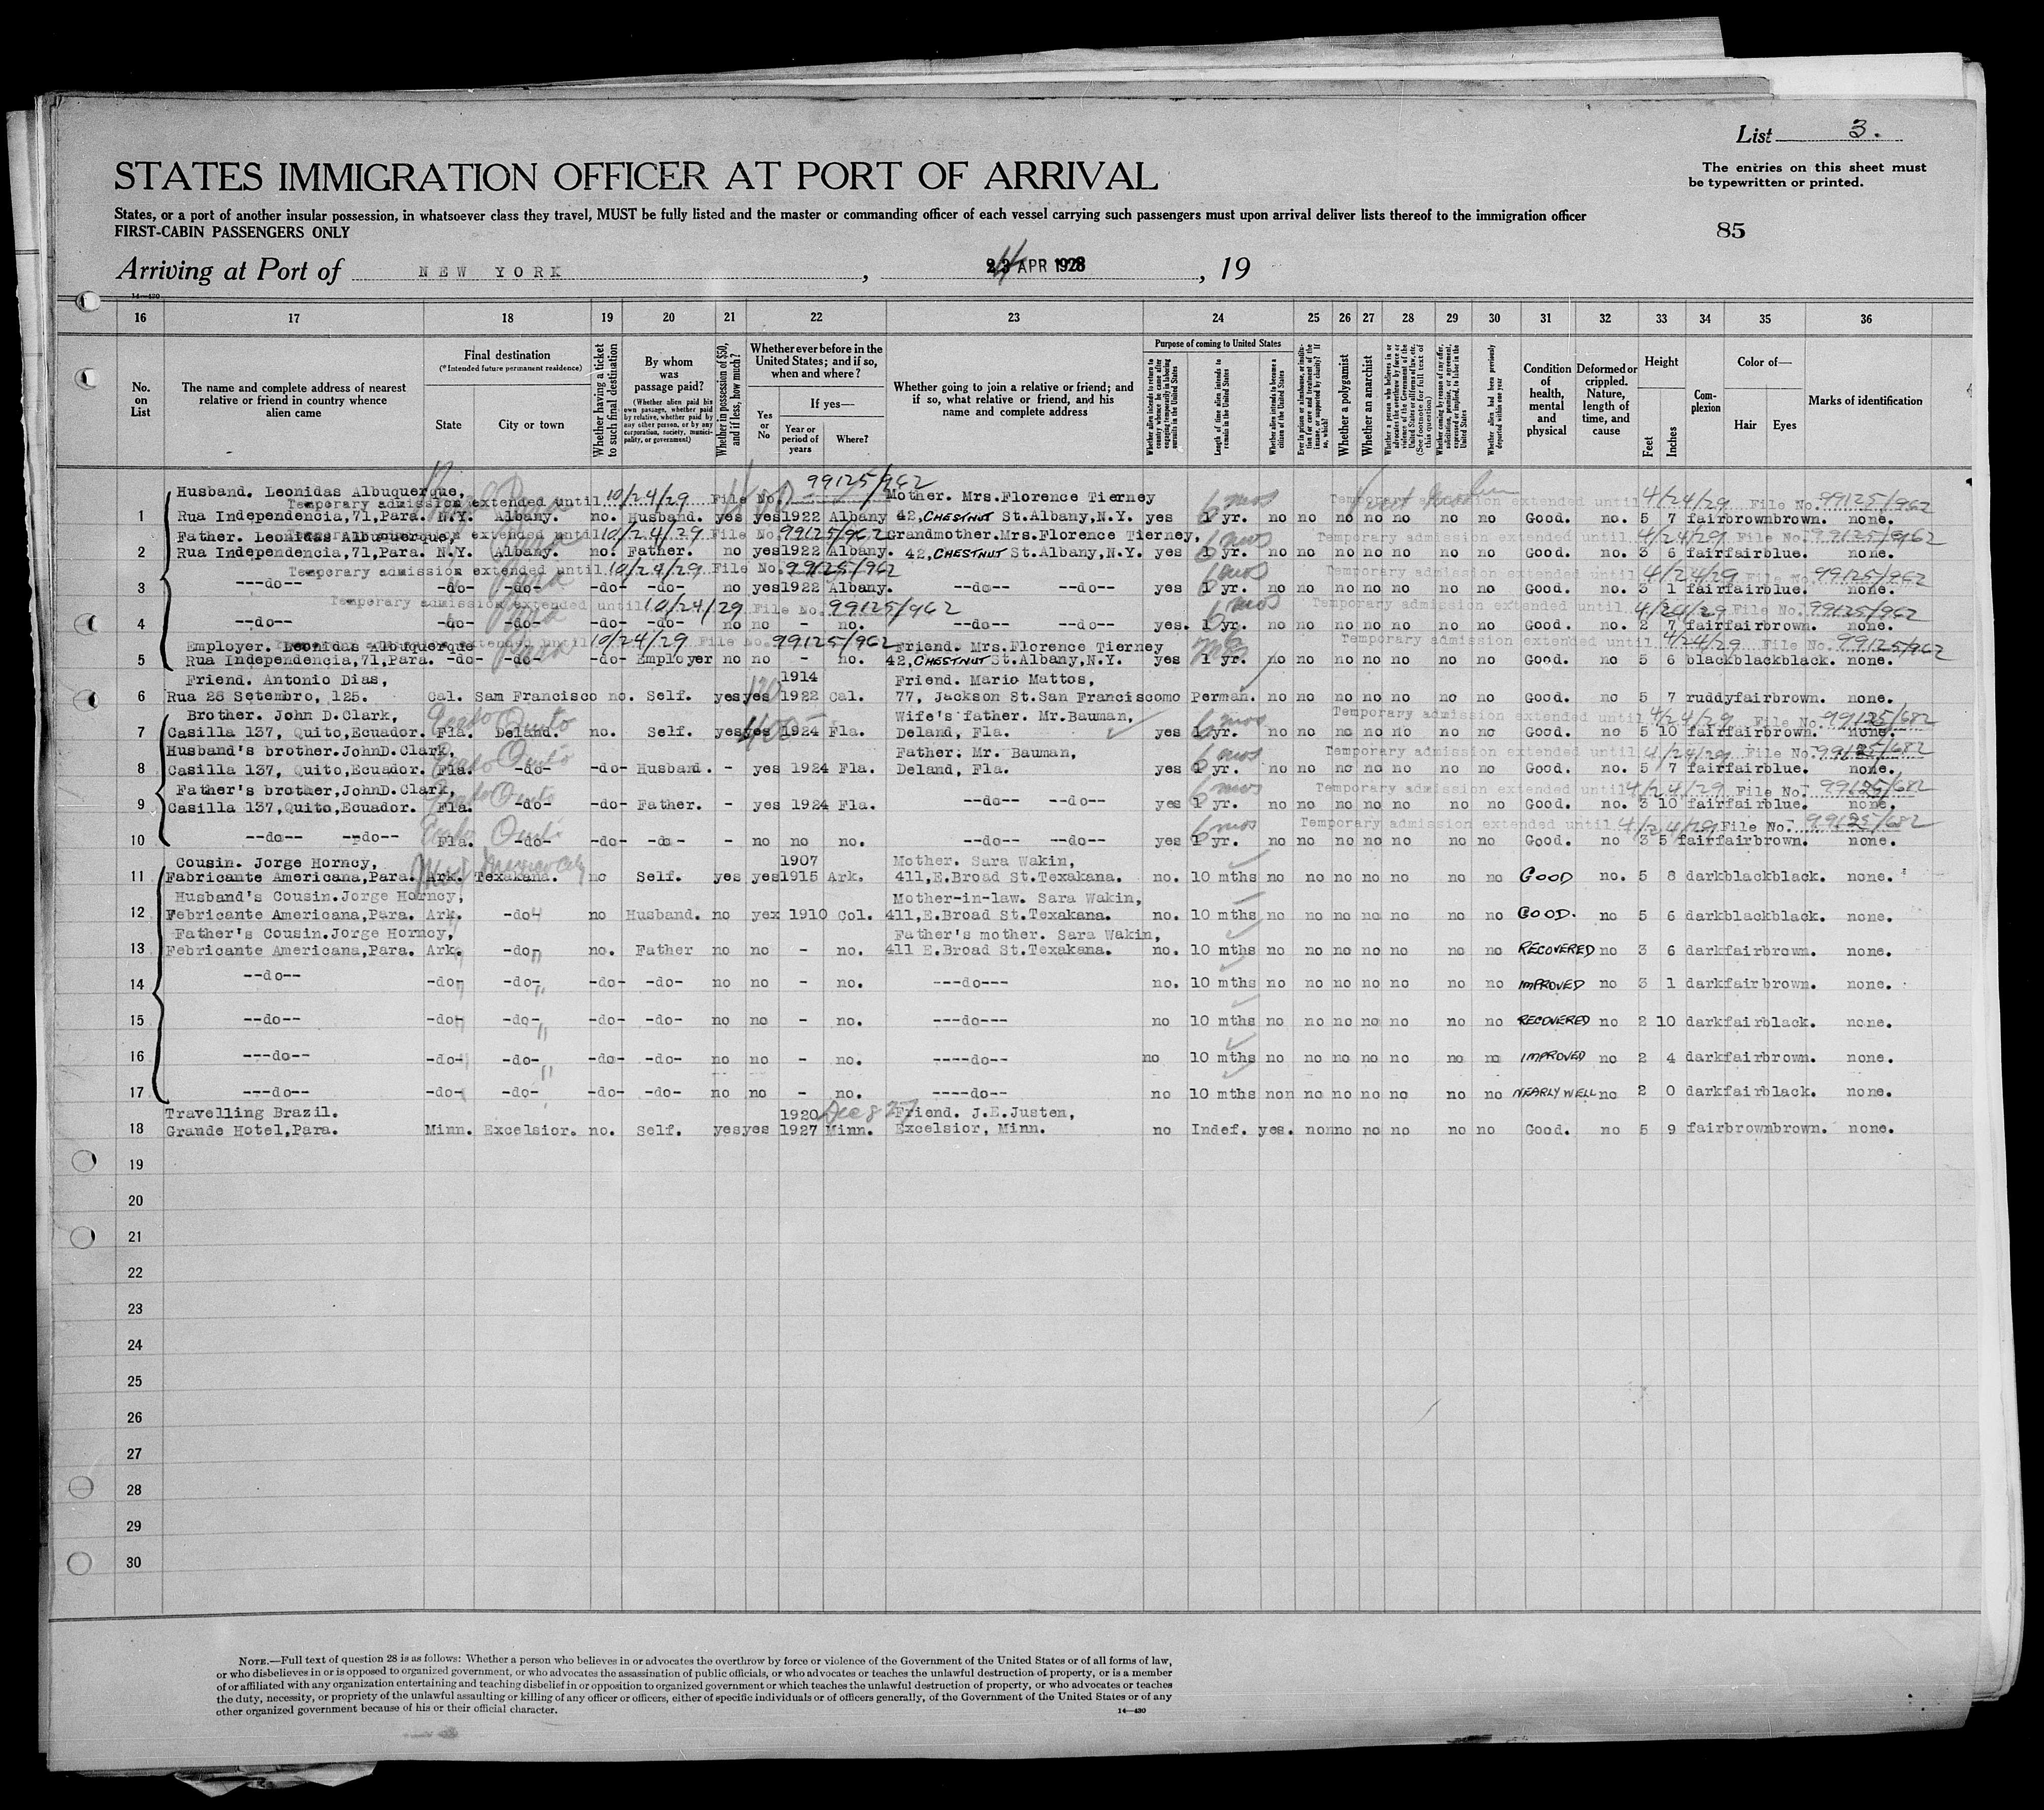 List 3.
STATES IMMIGRATION OFFICER AT PORT OF ARRIVAL
The entries on this sheet must
be typewritten or printed.
States, or a port of another insular possession, in whatsoever class they travel, MUST be fully listed and the master or commanding officer of each vessel carrying such passengers must upon arrival deliver lists thereof to the immigration officer
FIRST-CABIN PASSENGERS ONLY
85
Arriving at Port of NEW YORK, APR 1928, 19
14—430
16 17 18 19 20 21 22 23 24 25 26 27 28 29 30 31 32 33 34 35 36
No. on List
The name and complete address of nearest relative or friend in country whence alien came
Final destination
(*Intended future permanent residence)
State
City or town
Whether having a ticket to such final destination
By whom was passage paid?
(Whether alien paid his own passage, whether paid by relative, whether paid by any other person, or by any corporation, society, municipality, or government)
Whether in possession of $50, and if less, how much?
Whether ever before in the United States; and if so, when and where?
Yes or No
If yes—
Year or period of years
Where?
Whether going to join a relative or friend; and if so, what relative or friend, and his name and complete address
Purpose of coming to United States
Whether alien intends to return to country whence he came after engaging temporarily in laboring pursuits in the United States
Length of time alien intends to remain in the United States
Whether alien intends to become a citizen of the United States
Ever in prison or almshouse, or institution for care and treatment of the insane, or supported by charity? If so, which?
Whether a polygamist
Whether an anarchist
Whether a person who believes in or advocates the overthrow by force or violence of the Government of the United States or all forms of law, etc. (See footnote for full text of this question)
Whether coming by reason of any offer, solicitation, promise, or agreement, expressed or implied, to labor in the United States
Whether alien had been previously deported within one year
Condition of health, mental and physical
Deformed or crippled. Nature, length of time, and cause
Height
Feet
Inches
Complexion
Color of—
Hair
Eyes
Marks of identification
99125/962
Husband. Leonidas Albuquerque, Mother. Mrs.Florence Tierney 6 mos
Temporary admission extended until 10/24/29 File No. Temporary admission extended until 4/24/29 File No. 99125/962
1 Rua Independencia,71,Para. N.Y. Albany. no. Husband. yes yes 1922 Albany 42, CHESTNUT St.Albany,N.Y. yes 1 yr. no no no no no no no Good. no. 5 7 fair brown brown. none.
Father. Leonidas Albuquerque, Grandmother.Mrs.Florence Tierney, 6 mos
Temporary admission extended until 10/24/29 File No. 99125/962 Temporary admission extended until 4/24/29 File No. 99125/962
2 Rua Independencia,71,Para. N.Y. Albany. no. Father. no yes 1922 Albany. 42, CHESTNUT St.Albany,N.Y. yes 1 yr. no no no no no no no Good. no. 3 6 fair fair blue. none.
Temporary admission extended until 10/24/29 File No. 99125/962 Para 6 mos Temporary admission extended until 4/24/29 File No. 99125/962
3 ---do-- -do- -do- -do- -do- no yes 1922 Albany. --do-- --do-- yes 1 yr. no no no no no no no Good. no. 3 1 fair fair blue. none.
Temporary admission extended until 10/24/29 File No. 99125/962 Para 6 mos Temporary admission extended until 4/24/29 File No. 99125/962
4 --do-- -do- -do- -do- -do- no no - no. --do-- --do-- yes. 1 yr. no no no no no no no Good. no. 2 7 fair fair brown. none.
Employer. Leonidas Albuquerque Friend. Mrs.Florence Tierney
Temporary admission extended until 10/24/29 File No. 99125/962 Para Temporary admission extended until 4/24/29 File No. 99125/962
5 Rua Independencia,71,Para. -do- -do- -do- Employer no no - no. 42, CHESTNUT St.Albany,N.Y. yes 1 yr. no no no no no no no Good. no 5 6 black black black. none.
Friend. Antonio Dias, 1914 Friend. Mario Mattos,
6 Rua 28 Setembro, 125. Cal. San Francisco no. Self. yes yes 1922 Cal. 77, Jackson St.San Francisco no Perman. no no no no no no no Good. no 5 7 ruddy fair brown. none.
Brother. John D.Clark, Quito Wife's father. Mr.Bauman, 6 mos Temporary admission extended until 4/24/29 File No. 99125/682
7 Casilla 137, Quito,Ecuador. Fla. Deland. no. Self. yes yes 1924 Fla. Deland, Fla. yes 1 yr. no no no no no no no Good. no 5 10 fair fair brown. none.
Husband's brother.JohnD.Clark, Quito Father. Mr. Bauman, 6 mos Temporary admission extended until 4/24/29 File No. 99125/682
8 Casilla 137, Quito,Ecuador. Fla. -do- -do- Husband. - yes 1924 Fla. Deland, Fla. yes 1 yr. no no no no no no no Good. no. 5 7 fair fair blue. none.
Father's brother,JohnD.Clark, Quito 6 mos Temporary admission extended until 4/24/29 File No. 99125/682
9 Casilla 137,Quito,Ecuador. Fla. -do- -do- Father. - yes 1924 Fla. --do-- --do-- yes 1 yr. no no no no no no no Good. no. 3 10 fair fair blue. none.
Quito 6 mos Temporary admission extended until 4/24/29 File No. 99125/682
10 --do-- --do-- Fla. -do- -do- -do- - no no no. --do-- --do-- yes 1 yr. no no no no no no no Good. no 3 5 fair fair brown. none.
Cousin. Jorge Horncy, 1907 Mother. Sara Wakin,
11 Fabricante Americana,Para. Ark. Texakana. no Self. yes yes 1915 Ark. 411,E.Broad St.Texakana. no. 10 mths no no no no no no no GOOD no. 5 8 dark black black. none.
Husband's Cousin.Jorge Horncy, Mother-in-law. Sara Wakin,
12 Febricante Americana,Para. Ark. -do- no Husband. no yex 1910 Col. 411,E.Broad St.Texakana. no. 10 mths no no no no no no no GOOD. no 5 6 dark black black. none.
Father's Cousin.Jorge Horncy, Father's mother. Sara Wakin,
13 Febricante Americana,Para. Ark. -do- no. Father no no - no. 411 E.Broad St.Texakana. no. 10 mths no no no no no no no RECOVERED no 3 6 dark fair brown. none.
14 --do-- -do- -do- -do- -do- no no - no. ---do--- no. 10 mths no no no no no no no IMPROVED no 3 1 dark fair brown. none.
15 --do-- -do- -do- -do- -do- no no - no. ---do--- no 10 mths no no no no no no no RECOVERED no 2 10 dark fair black. none.
16 ---do-- -do- -do- -do- -do- no no - no. ----do-- no 10 mths no no no no no no no IMPROVED no 2 4 dark fair brown. none.
17 ---do-- -do- -do- -do- -do- no no - no. ----do-- no 10 mths no n no no no no no no NEARLY WELL no 2 0 dark fair black. none.
Travelling Brazil. 1920 Dec 8 27 Friend. J.E.Justen,
18 Grande Hotel,Para. Minn. Excelsior. no. Self. yes yes 1927 Minn. Excelsior, Minn. no Indef. yes. non no no no no no Good. no 5 9 fair brown brown. none.
19
20
21
22
23
24
25
26
27
28
29
30
NOTE.—Full text of question 28 is as follows: Whether a person who believes in or advocates the overthrow by force or violence of the Government of the United States or of all forms of law,
or who disbelieves in or is opposed to organized government, or who advocates the assassination of public officials, or who advocates or teaches the unlawful destruction of property, or is a member
of or affiliated with any organization entertaining and teaching disbelief in or opposition to organized government or which teaches the unlawful destruction of property, or who advocates or teaches
the duty, necessity, or propriety of the unlawful assaulting or killing of any officer or officers, either of specific individuals or of officers generally, of the Government of the United States or of any
other organized government because of his or their official character.
14—430